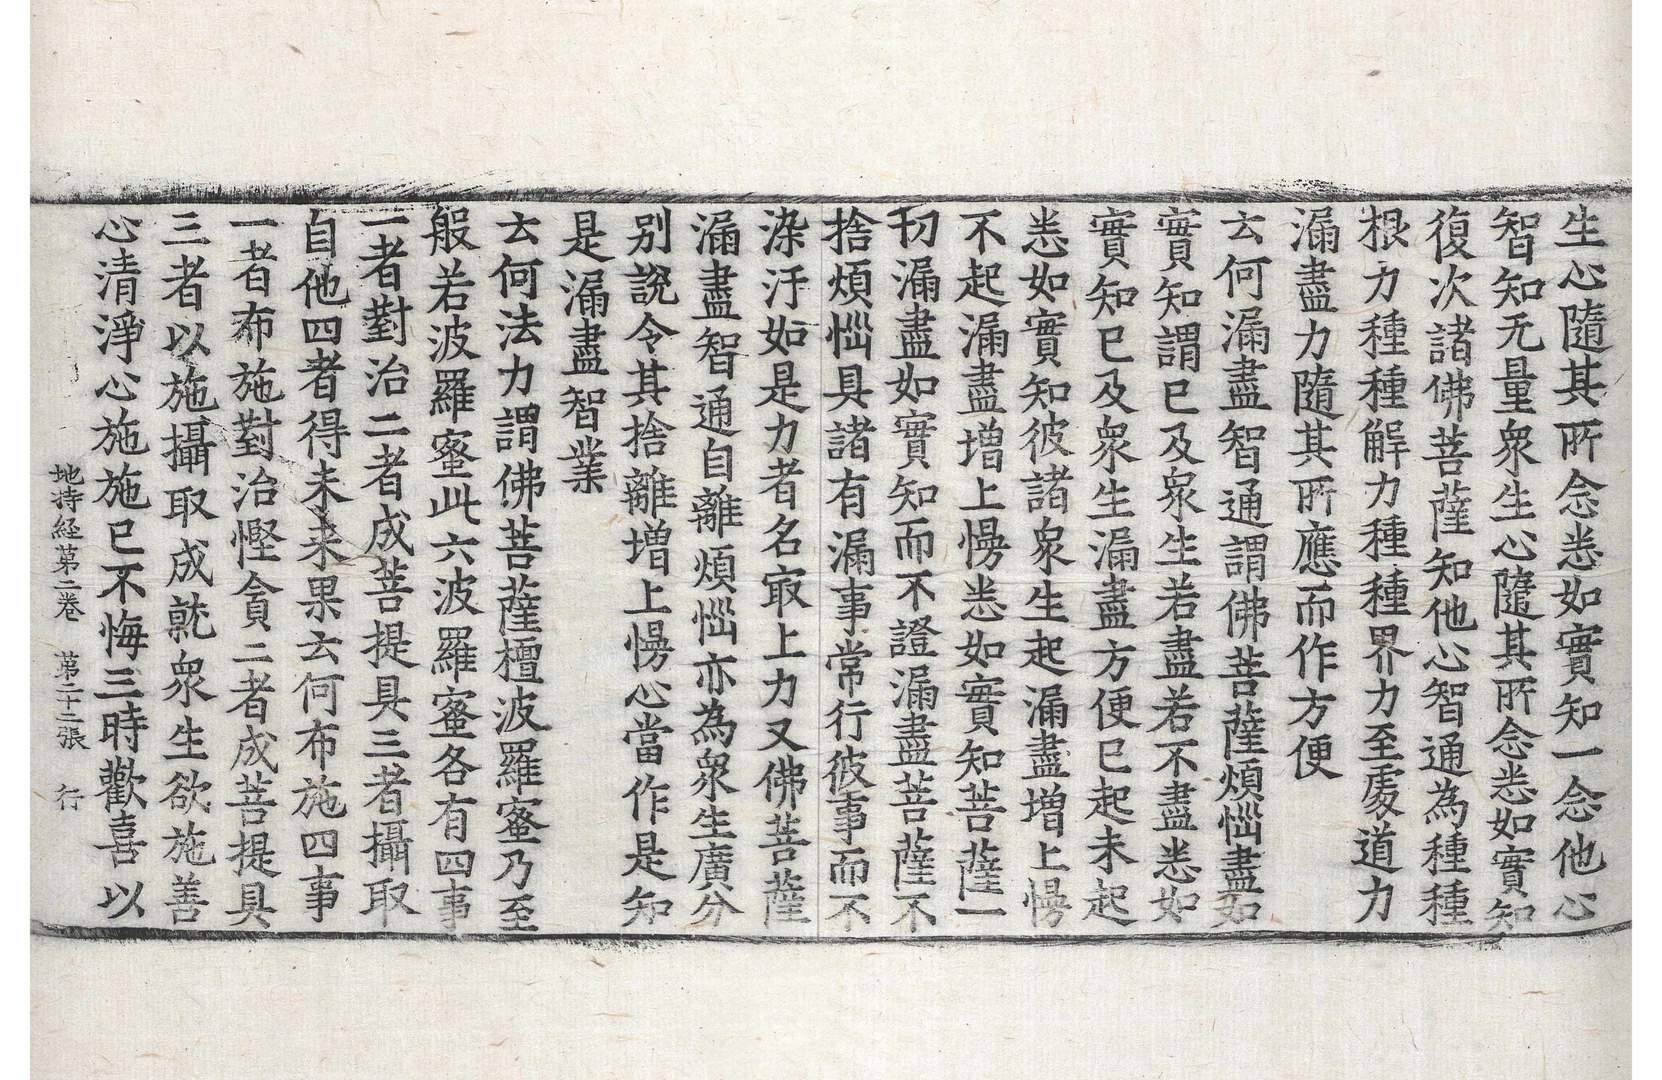 生心隨其所念悉如實知一念他心
智知无量衆生心隨其所念悉如實知
復次諸佛菩薩知他心智通為種種
根力種種解力種種界力至處道力
漏盡力隨其所應而作方便
云何漏盡智通謂佛菩薩煩惱盡如
實知謂已及衆生若盡若不盡悉如
實知已及衆生漏盡方便已起未起
悉如實知彼諸衆生起漏盡增上慢
不起漏盡增上慢悉如實知菩薩一
切漏盡如實知而不證漏盡菩薩不
捨煩惱具諸有漏事常行彼事而不
染汙如是力者名㝡上力又佛菩薩
漏盡智通自離煩惱亦為衆生廣分
别說令其捨離增上慢心當作是知
是漏盡智業
云何法力謂佛菩薩檀波羅蜜乃至
般若波羅蜜此六波羅蜜各有四事
一者對治二者成菩提具三者攝取
自他四者得未来果云何布施四事
一者布施對治慳貪二者成菩提具
三者以施攝取成就衆生欲施善
心清淨心施施已不悔三時歡喜以
地持経第二卷　第二十二張　行